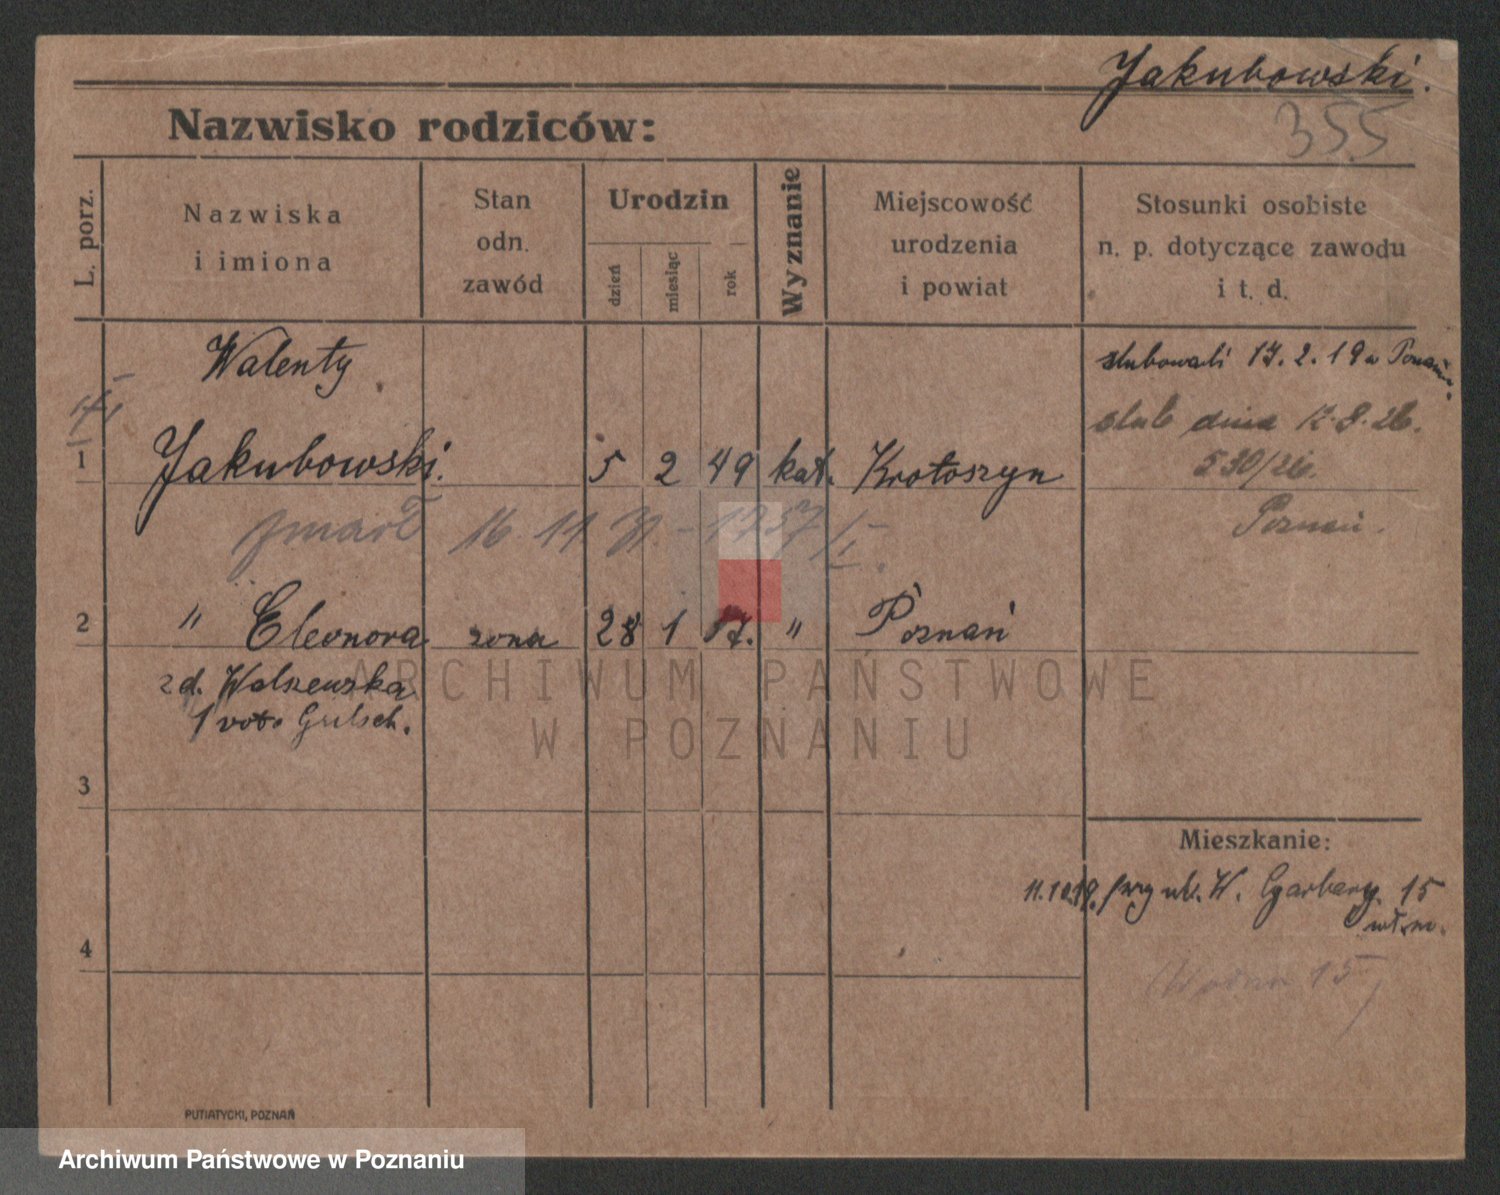 Jakubowski.
355
Nazwisko rodziców:
L. porz.
Nazwiska
i imiona
Stan
odn.
zawód
Urodzin
dzień
miesiąc
rok
Wyznanie
Miejscowość
urodzenia
i powiat
Stosunki osobiste
n. p. dotyczące zawodu
i t. d.
Walenty
ślubowali 17.2.19 w Poznaniu.
ślub dnia 12.8.26.
530/26.
Poznań.
1 Jakubowski. 5 2 49 kat. Krotoszyn
zmarł 16.11.31. - 1257/I.
2 " Eleonora żona 28 1 " Poznań
z d.
1 voto
3
Mieszkanie:
W. Garbary. 15
4
15
PUTIATYCKI, POZNAŃ
ARCHIWUM PAŃSTWOWE
W POZNANIU
Archiwum Państwowe w Poznaniu